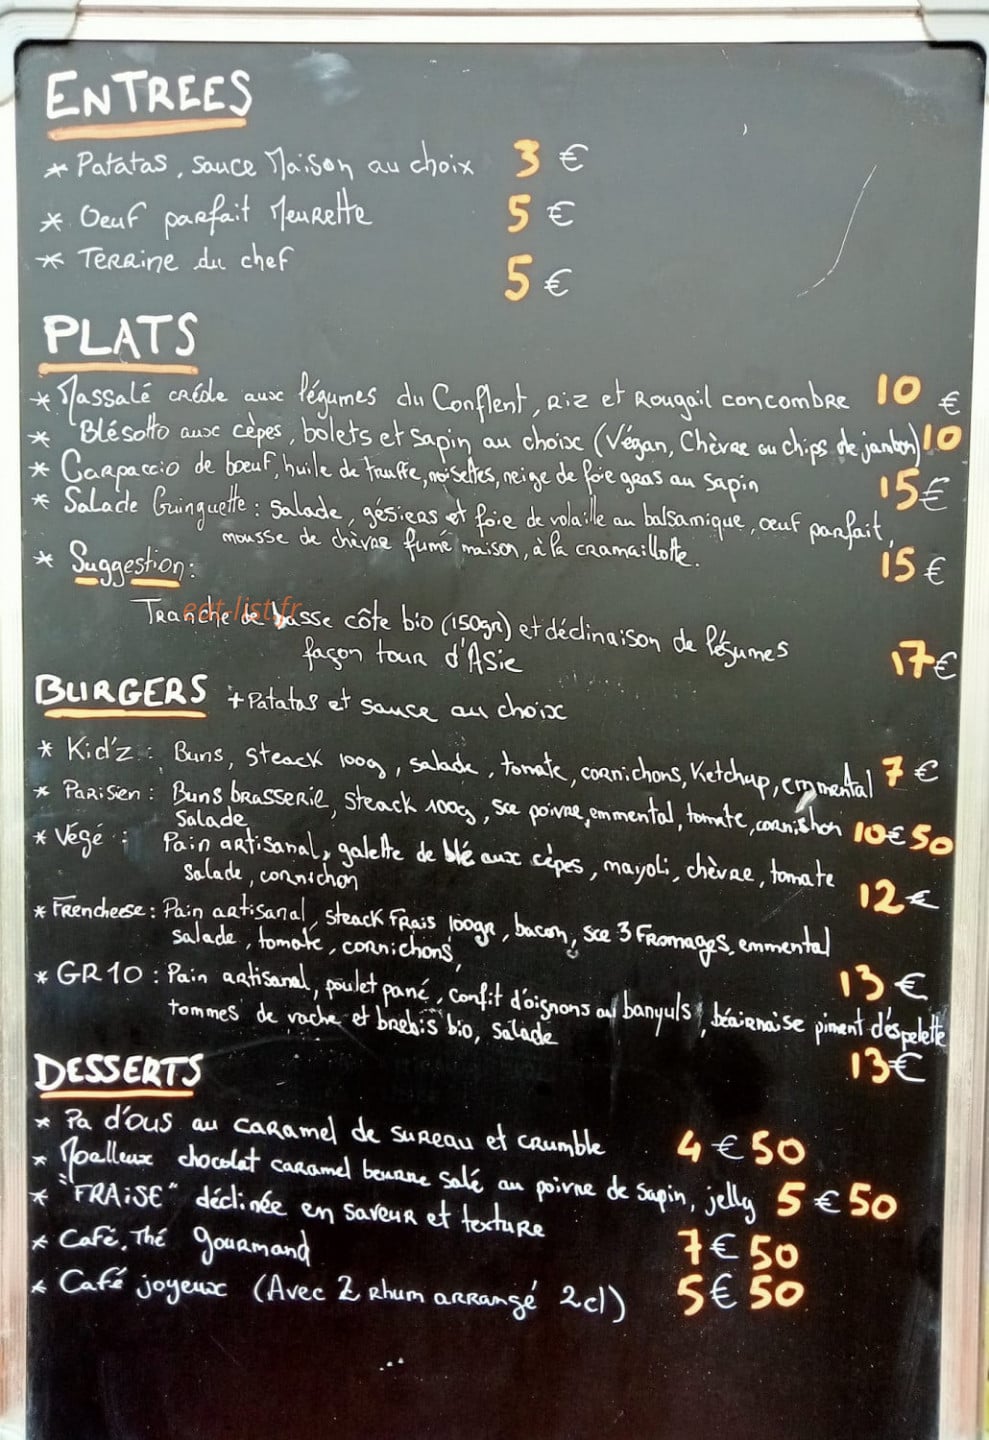 ENTREES
* Patatas, sauce Maison au choix 3 €
* Oeuf parfait Meurette 5 €
* Terrine du chef 5 €
PLATS
* Massalé créole aux légumes du Conflent, riz et Rougail concombre 10 €
* Blésotto aux cèpes, bolets et sapin au choix (Végan, Chèvre ou chips de jambon) 10
* Carpaccio de boeuf, huile de truffe, noisettes, neige de foie gras au sapin 15€
* Salade Guinguette : salade, gésiers et foie de volaille au balsamique, œuf parfait,
mousse de chèvre fumé maison, à la cramaillotte. 15 €
* Suggestion:
eat-list.fr
Tranche de basse côte bio (150gr) et déclinaison de légumes
façon tour d'Asie 17€
BURGERS + Patatas et sauce au choix
* Kid'z : Buns, steack 100g, salade, tomate, cornichons, Ketchup, emmental 7 €
* Parisien : Buns brasserie, steack 100g, sce poivre, emmental, tomate, cornichon 10€50
salade
* Végé : Pain artisanal, galette de blé aux cèpes, mayoli, chèvre, tomate
salade, cornichon 12€
* Frencheese : Pain artisanal, steack Frais 100gr, bacon, sce 3 Fromages, emmental
salade, tomate, cornichons 13€
* GR10 : Pain artisanal, poulet pané, confit d'oignons au banyuls, béairnaise piment d'éspelette
tommes de vache et brebis bio, salade 13€
DESSERTS
* Pa d'ous au caramel de sureau et crumble 4 € 50
* Moelleux chocolat caramel beurre salé au poivre de sapin, jelly 5 € 50
* "FRAISE" déclinée en saveur et texture 7 € 50
* Café, Thé gourmand
* Café joyeux (Avec 2 rhum arrangé 2cl) 5€ 50